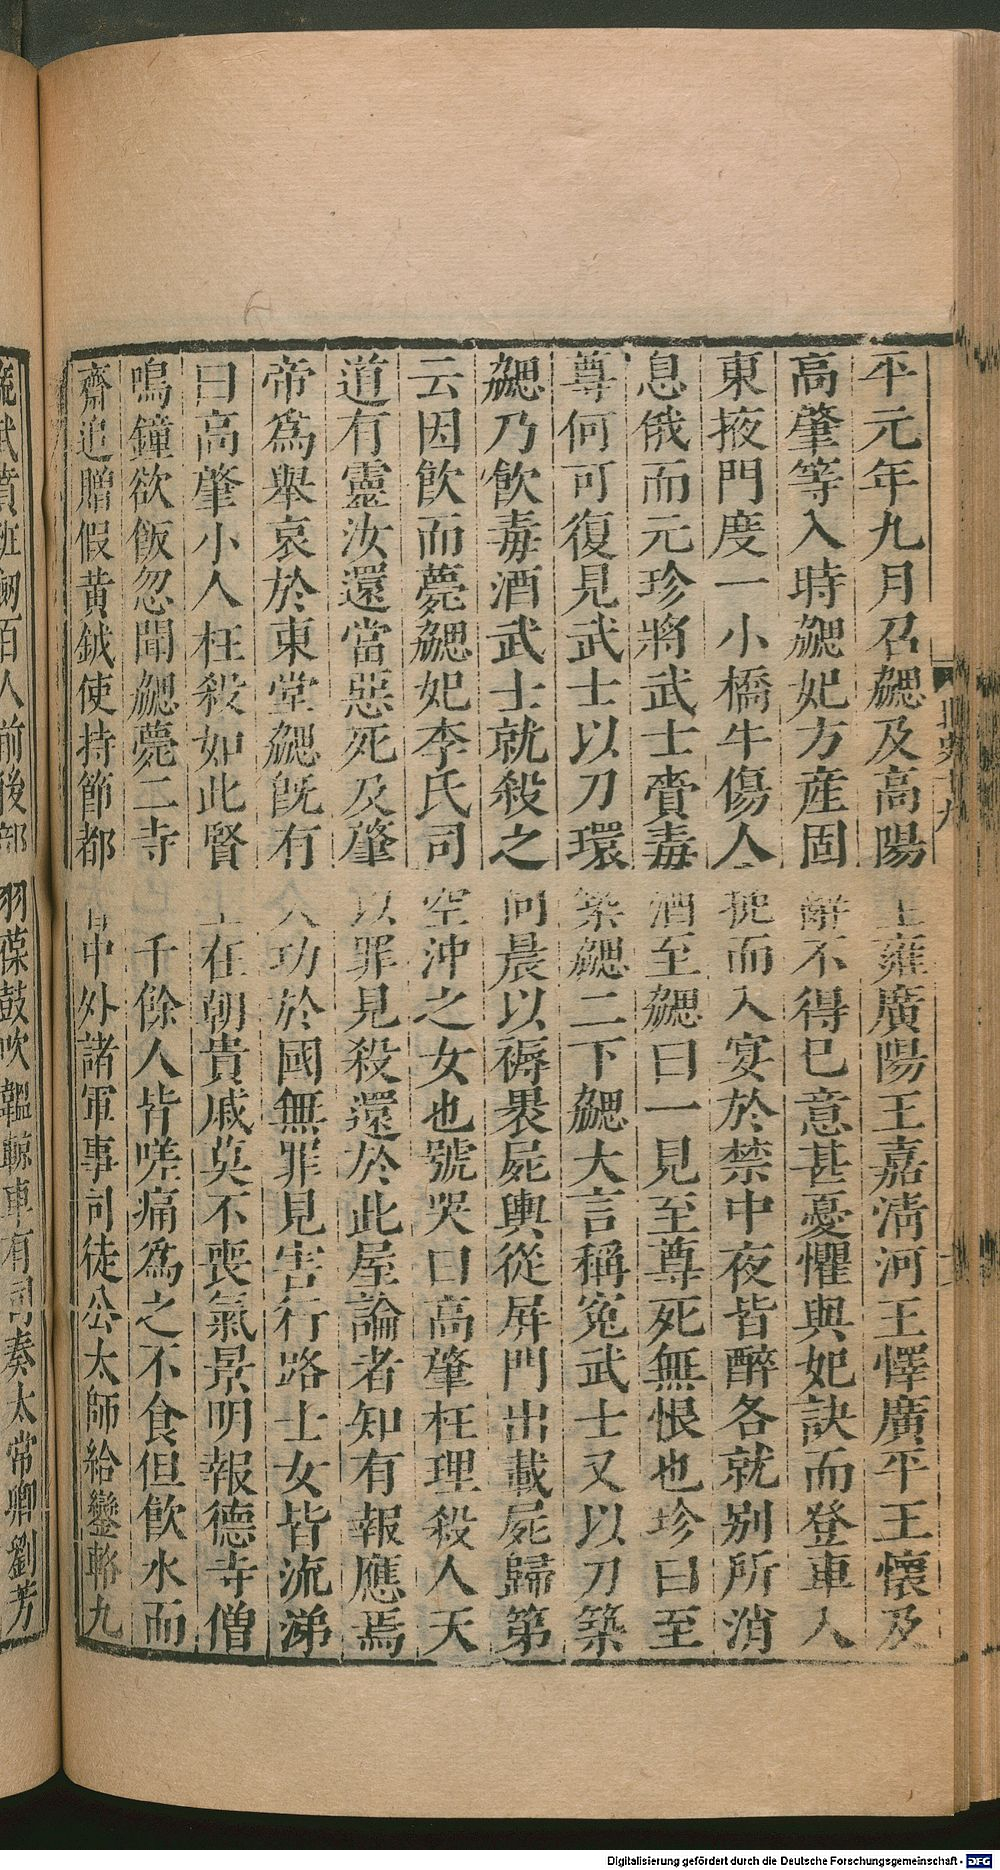 平元年九月召勰及高陽王雍廣陽王嘉淸河王懌廣平王懷及
高肇等入時勰妃方産固辭不得已意甚憂懼與妃訣而登車入
東掖門度一小橋牛傷人挽而入宴於禁中夜皆醉各就别所消
息俄而元珍將武士賫毒酒至勰曰一見至尊死無恨也珍曰至
尊何可復見武士以刀環築勰二下勰大言稱寃武士又以刀築
勰乃飮毒酒武士就殺之向晨以褥裹屍輿從屏門出載屍歸第
云因飮而薨勰妃李氏司空沖之女也號哭曰高肇枉理殺人天
道有靈汝還當惡死及肇以罪見殺還於此屋論者知有報應焉
帝爲舉哀於東堂勰旣有大功於國無罪見害行路士女皆流涕
曰高肇小人枉殺如此賢王在朝貴戚莫不喪氣景明報德寺僧
鳴鐘欲飯忽聞勰薨二寺千餘人皆嗟痛爲之不食但飮水而
齋追贈假黄鉞使持節都督中外諸軍事司徒公太師給鑾輅九
旒武賁班劒百人前後部羽葆鼓吹轀輬車有司奏太常卿劉芳
北史十九
Digitalisierung gefördert durch die Deutsche Forschungsgemeinschaft - DFG